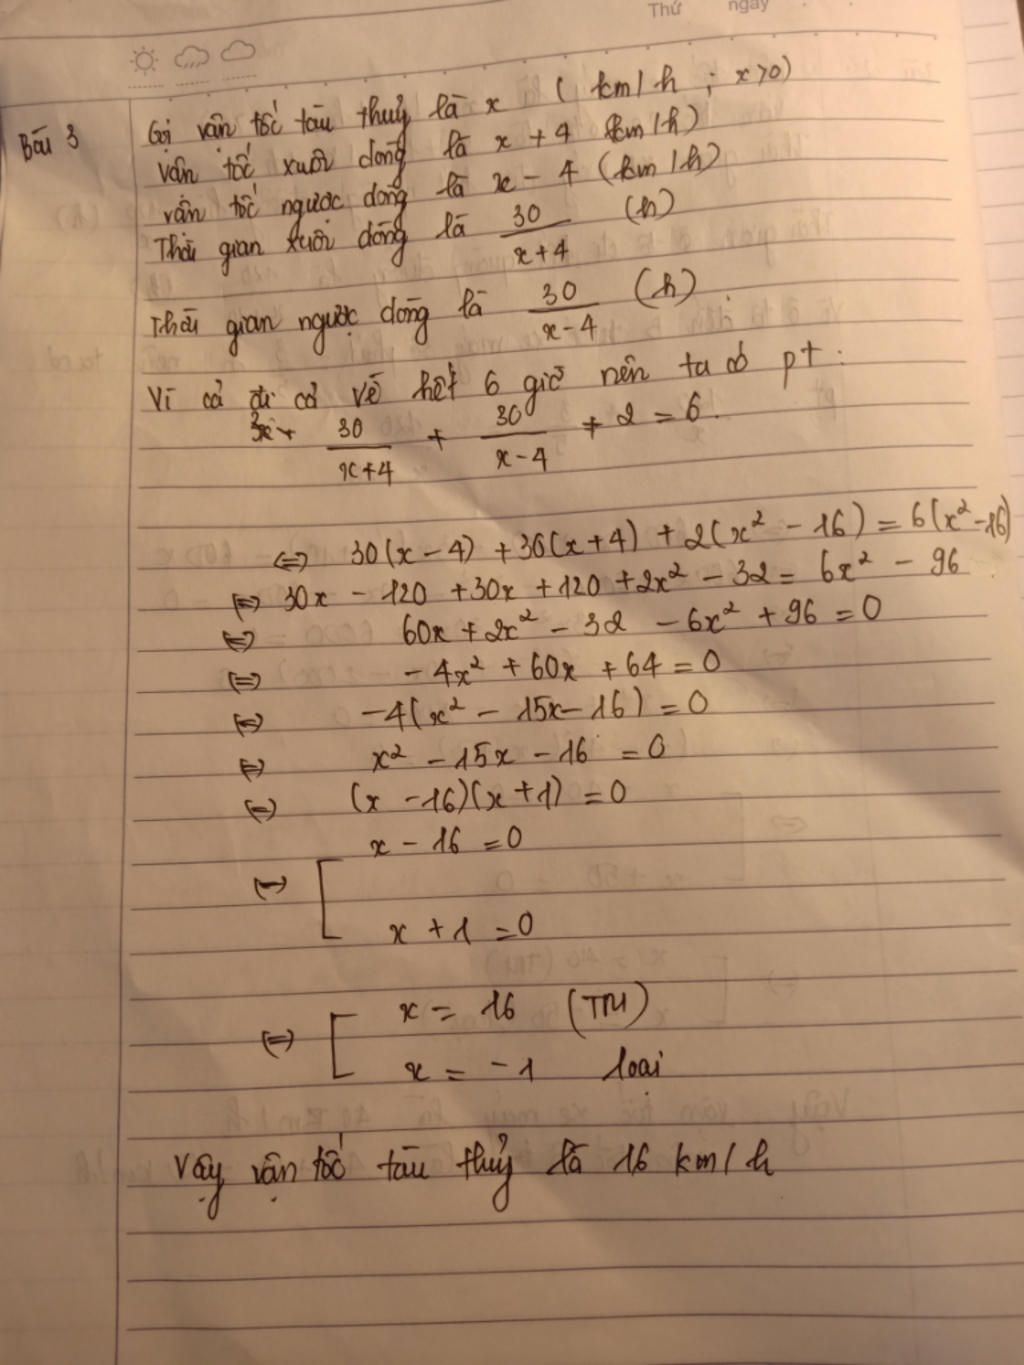 Thứ ngày
Bài 3
Gọi vận tốc tàu thuỷ là x (km/h ; x>0)
vận tốc xuôi dòng là x + 4 (km/h)
vận tốc ngược dòng là x - 4 (km/h)
Thời gian xuôi dòng là 30/(x+4) (h)
Thời gian ngược dòng là 30/(x-4) (h)
Vì cả đi cả về hết 6 giờ nên ta có pt :
30/(x+4) + 30/(x-4) + 2 = 6.
<=> 30(x-4) + 30(x+4) + 2(x² - 16) = 6(x²-16)
<=> 30x - 120 + 30x + 120 + 2x² - 32 = 6x² - 96
<=> 60x + 2x² - 32 - 6x² + 96 = 0
<=> - 4x² + 60x + 64 = 0
<=> -4(x² - 15x - 16) = 0
<=> x² - 15x - 16 = 0
<=> (x - 16)(x + 1) = 0
x - 16 = 0
<=> [
x + 1 = 0
<=> [ x = 16 (TM)
x = - 1 loại
Vậy vận tốc tàu thuỷ là 16 km/h